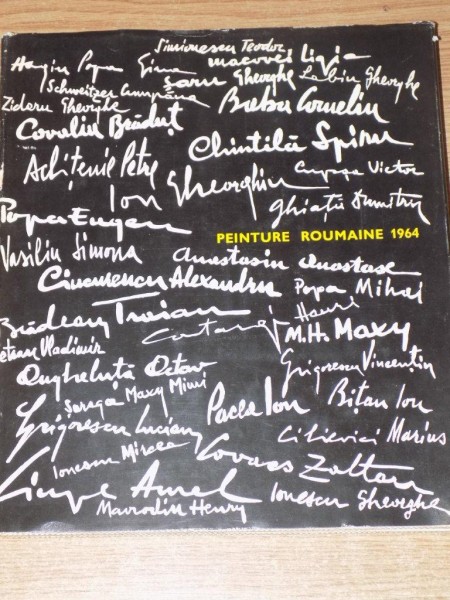 Simionescu Teodor
Hagiu Popa Gina
Macovei Ligia
Schweitzer Cumpăna
Șaru Gheorghe
Labin Gheorghe
Zidaru Gheorghe
Baba Corneliu
Covaliu Brăduț
Chintilă Spiru
Achițenie Petre
Ion Gheorghiu
Cupșa Victor
Ghiață Dumitru
Popa Eugen
PEINTURE ROUMAINE 1964
Vasiliu Simona
Anastasiu Anastase
Ciucurencu Alexandru
Popa Mihai
Brădean Traian
Catargi Henri
M.H. Maxy
Vladimir
Grigorescu Vincențiu
Angheluță Octav
Saraga Maxy Mimi
Pacea Ion
Bițan Ion
Grigorescu Lucian
Cilievici Marius
Ionescu Mircea
Covacs Zoltan
Aurel
Mavrodin Henry
Ionescu Gheorghe